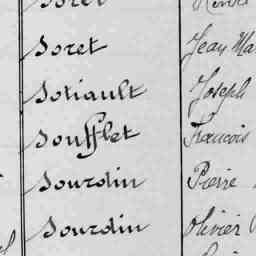 Soret
Soret Jean Ma
Sotiault Joseph
Soufflet Francois
Sourdin Pierre
Sourdin Olivier